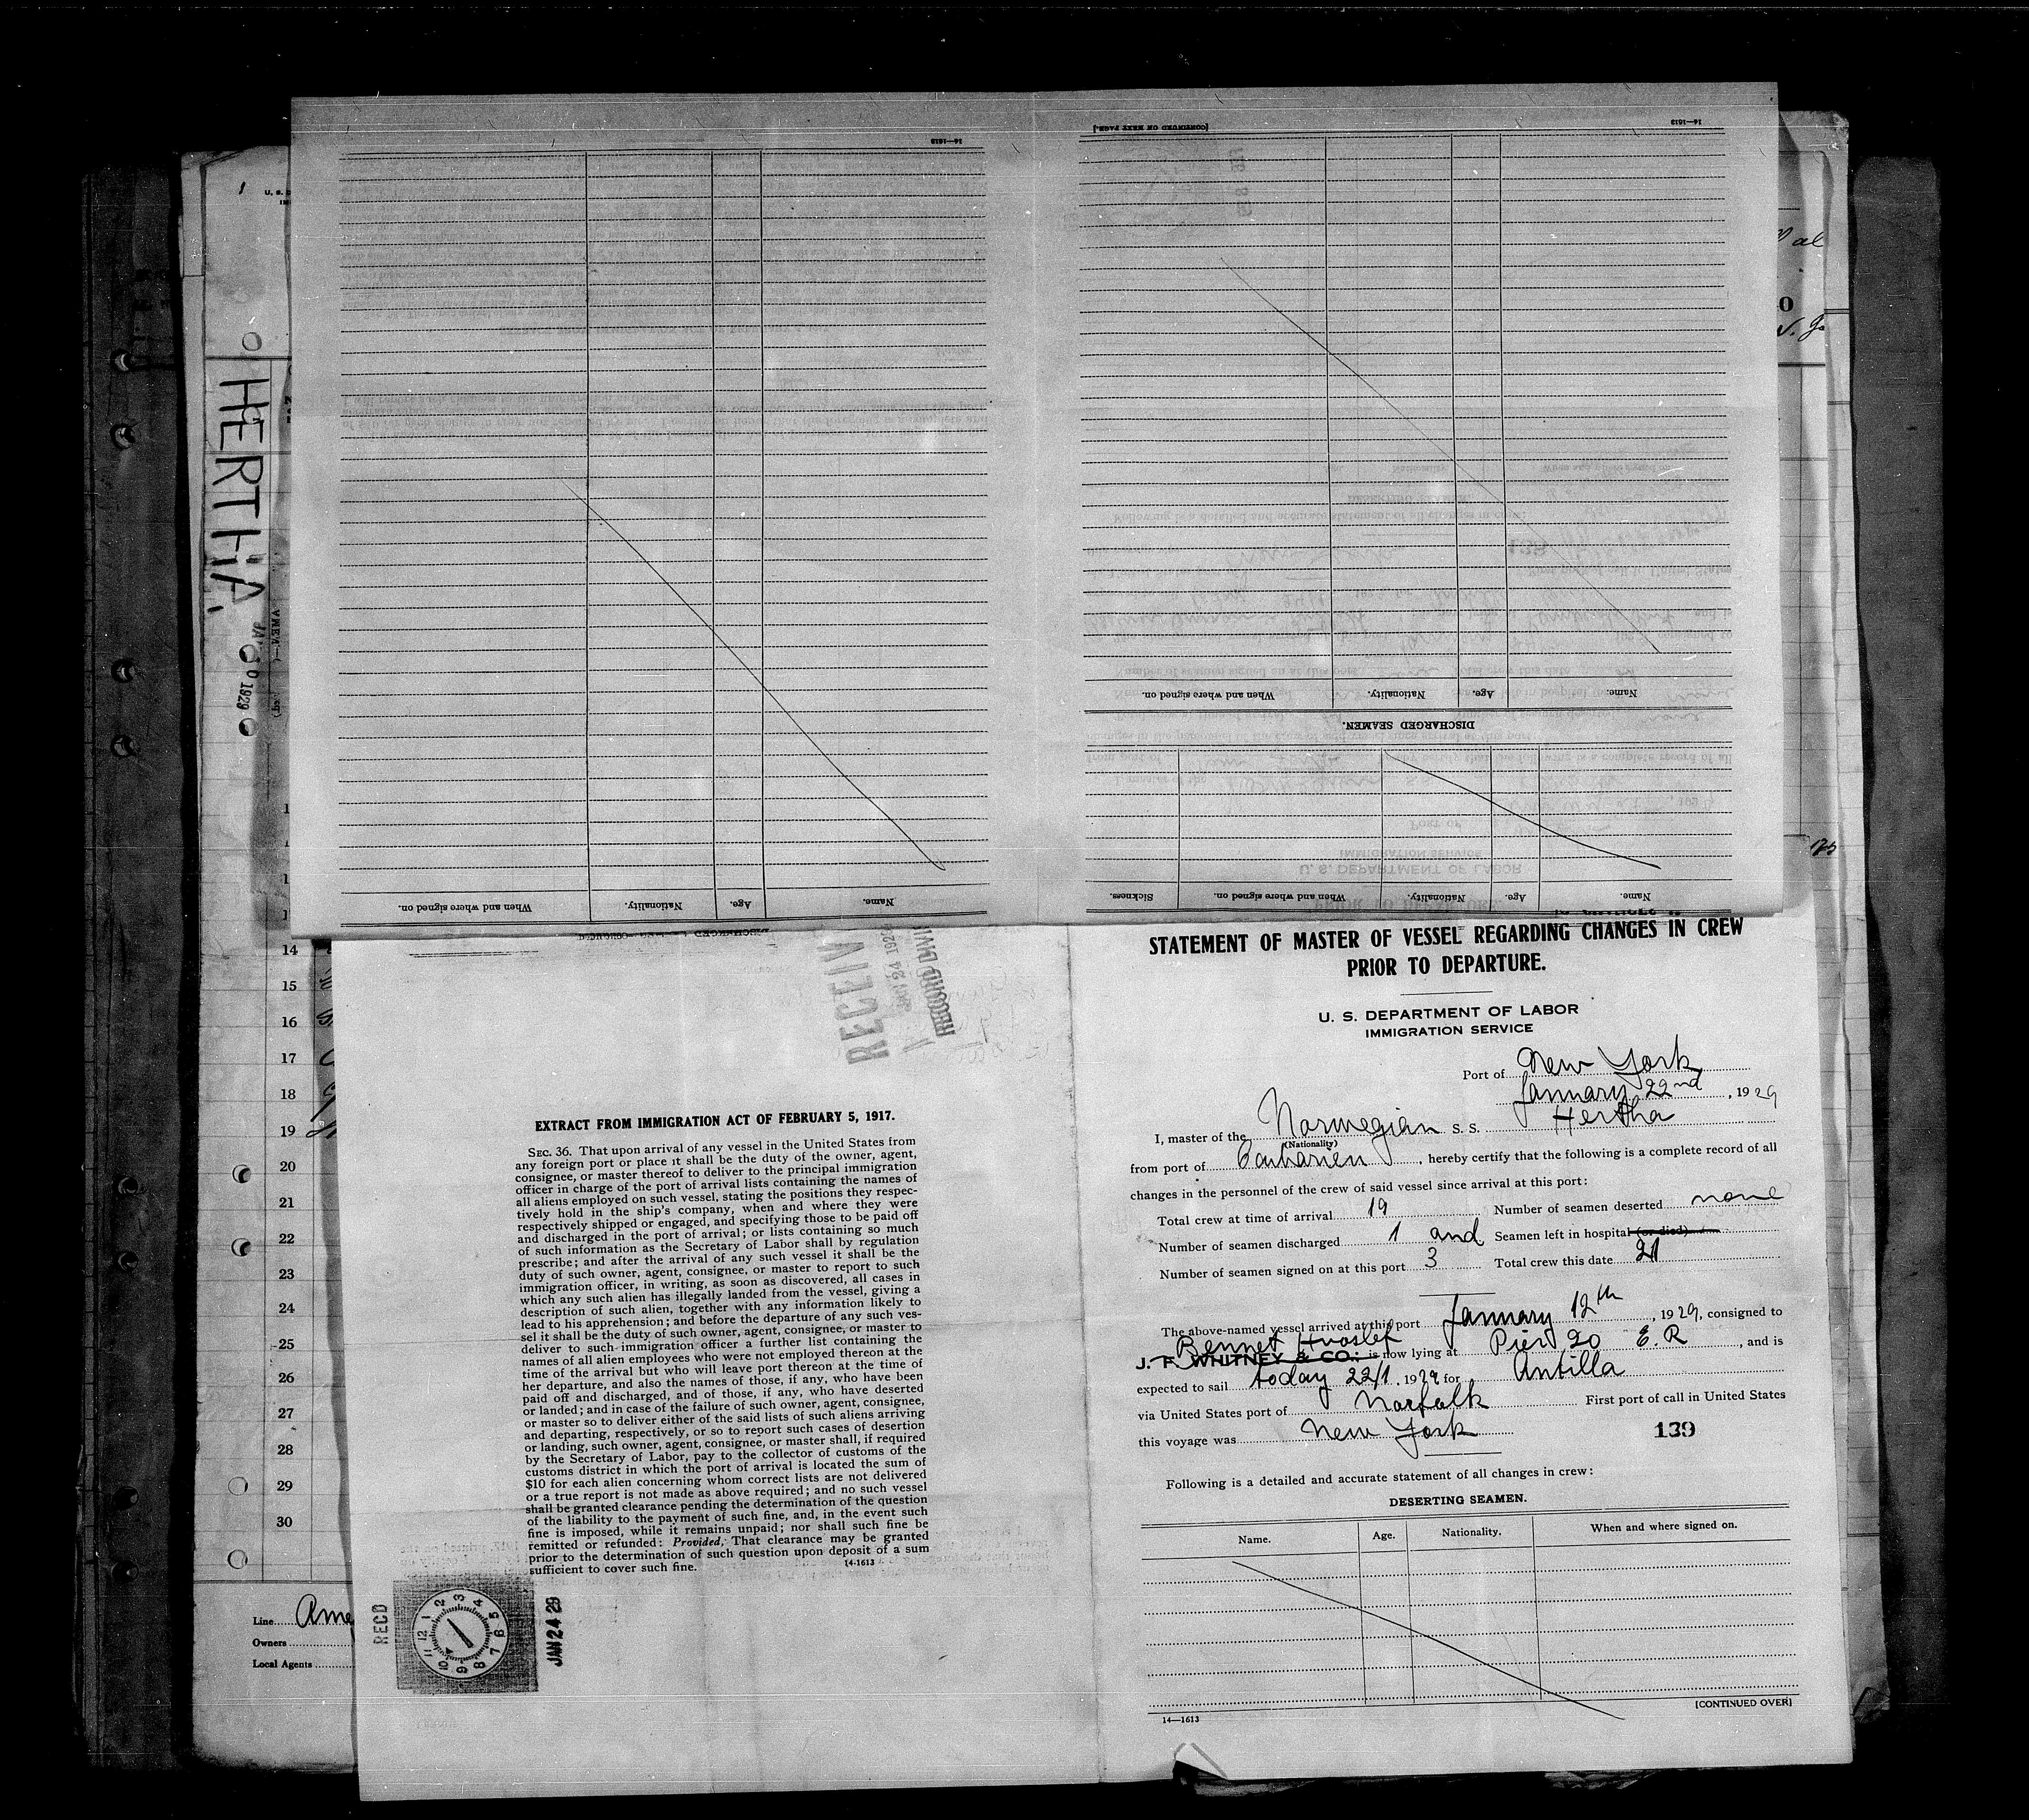 16—1613
[CONTINUED ON NEXT PAGE.]
16—1613
When and where signed on.
Nationality.
Age.
Name.
DISCHARGED SEAMEN.
Name.
Age.
Nationality.
When and where signed on.
Name.
Age.
Nationality.
When and where signed on.
Sickness.
HERTHA.
1929
14
15
16
17
18
19
20
21
22
23
24
25
26
27
28
29
30
Line
Owners
Local Agents
RECEIV
JAN 24 1929
EXTRACT FROM IMMIGRATION ACT OF FEBRUARY 5, 1917.
SEC. 36. That upon arrival of any vessel in the United States from
any foreign port or place it shall be the duty of the owner, agent,
consignee, or master thereof to deliver to the principal immigration
officer in charge of the port of arrival lists containing the names of
all aliens employed on such vessel, stating the positions they respec-
tively hold in the ship's company, when and where they were
respectively shipped or engaged, and specifying those to be paid off
and discharged in the port of arrival; or lists containing so much
of such information as the Secretary of Labor shall by regulation
prescribe; and after the arrival of any such vessel it shall be the
duty of such owner, agent, consignee, or master to report to such
immigration officer, in writing, as soon as discovered, all cases in
which any such alien has illegally landed from the vessel, giving a
description of such alien, together with any information likely to
lead to his apprehension; and before the departure of any such ves-
sel it shall be the duty of such owner, agent, consignee, or master to
deliver to such immigration officer a further list containing the
names of all alien employees who were not employed thereon at the
time of the arrival but who will leave port thereon at the time of
her departure, and also the names of those, if any, who have been
paid off and discharged, and of those, if any, who have deserted
or landed; and in case of the failure of such owner, agent, consignee,
or master so to deliver either of the said lists of such aliens arriving
and departing, respectively, or so to report such cases of desertion
or landing, such owner, agent, consignee, or master shall, if required
by the Secretary of Labor, pay to the collector of customs of the
customs district in which the port of arrival is located the sum of
$10 for each alien concerning whom correct lists are not delivered
or a true report is not made as above required; and no such vessel
shall be granted clearance pending the determination of the question
of the liability to the payment of such fine, and, in the event such
fine is imposed, while it remains unpaid; nor shall such fine be
remitted or refunded: Provided, That clearance may be granted
prior to the determination of such question upon deposit of a sum
sufficient to cover such fine.
14-1613
RECD
JAN 24 29
STATEMENT OF MASTER OF VESSEL REGARDING CHANGES IN CREW
PRIOR TO DEPARTURE.
U. S. DEPARTMENT OF LABOR
IMMIGRATION SERVICE
Port of New York
January 22nd, 1929
I, master of the Norwegian S. S. Hertha
(Nationality)
from port of Caibarien, hereby certify that the following is a complete record of all
changes in the personnel of the crew of said vessel since arrival at this port:
Total crew at time of arrival 19 Number of seamen deserted none
Number of seamen discharged 1 and Seamen left in hospital (or died)
Number of seamen signed on at this port 3 Total crew this date 21
The above-named vessel arrived at this port January 12th, 1929, consigned to
Bennet Hvoslef
J. F. WHITNEY & CO.: is now lying at Pier 20 E.R, and is
expected to sail today 22/1, 1929 for Antilla
via United States port of Norfolk First port of call in United States
this voyage was New York
139
Following is a detailed and accurate statement of all changes in crew:
DESERTING SEAMEN.
Name. Age. Nationality. When and where signed on.
[CONTINUED OVER]
14—1613